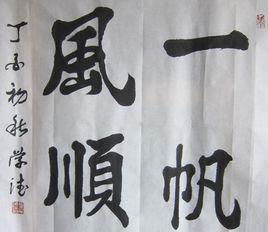 一帆
風順
丁亥初秋学法